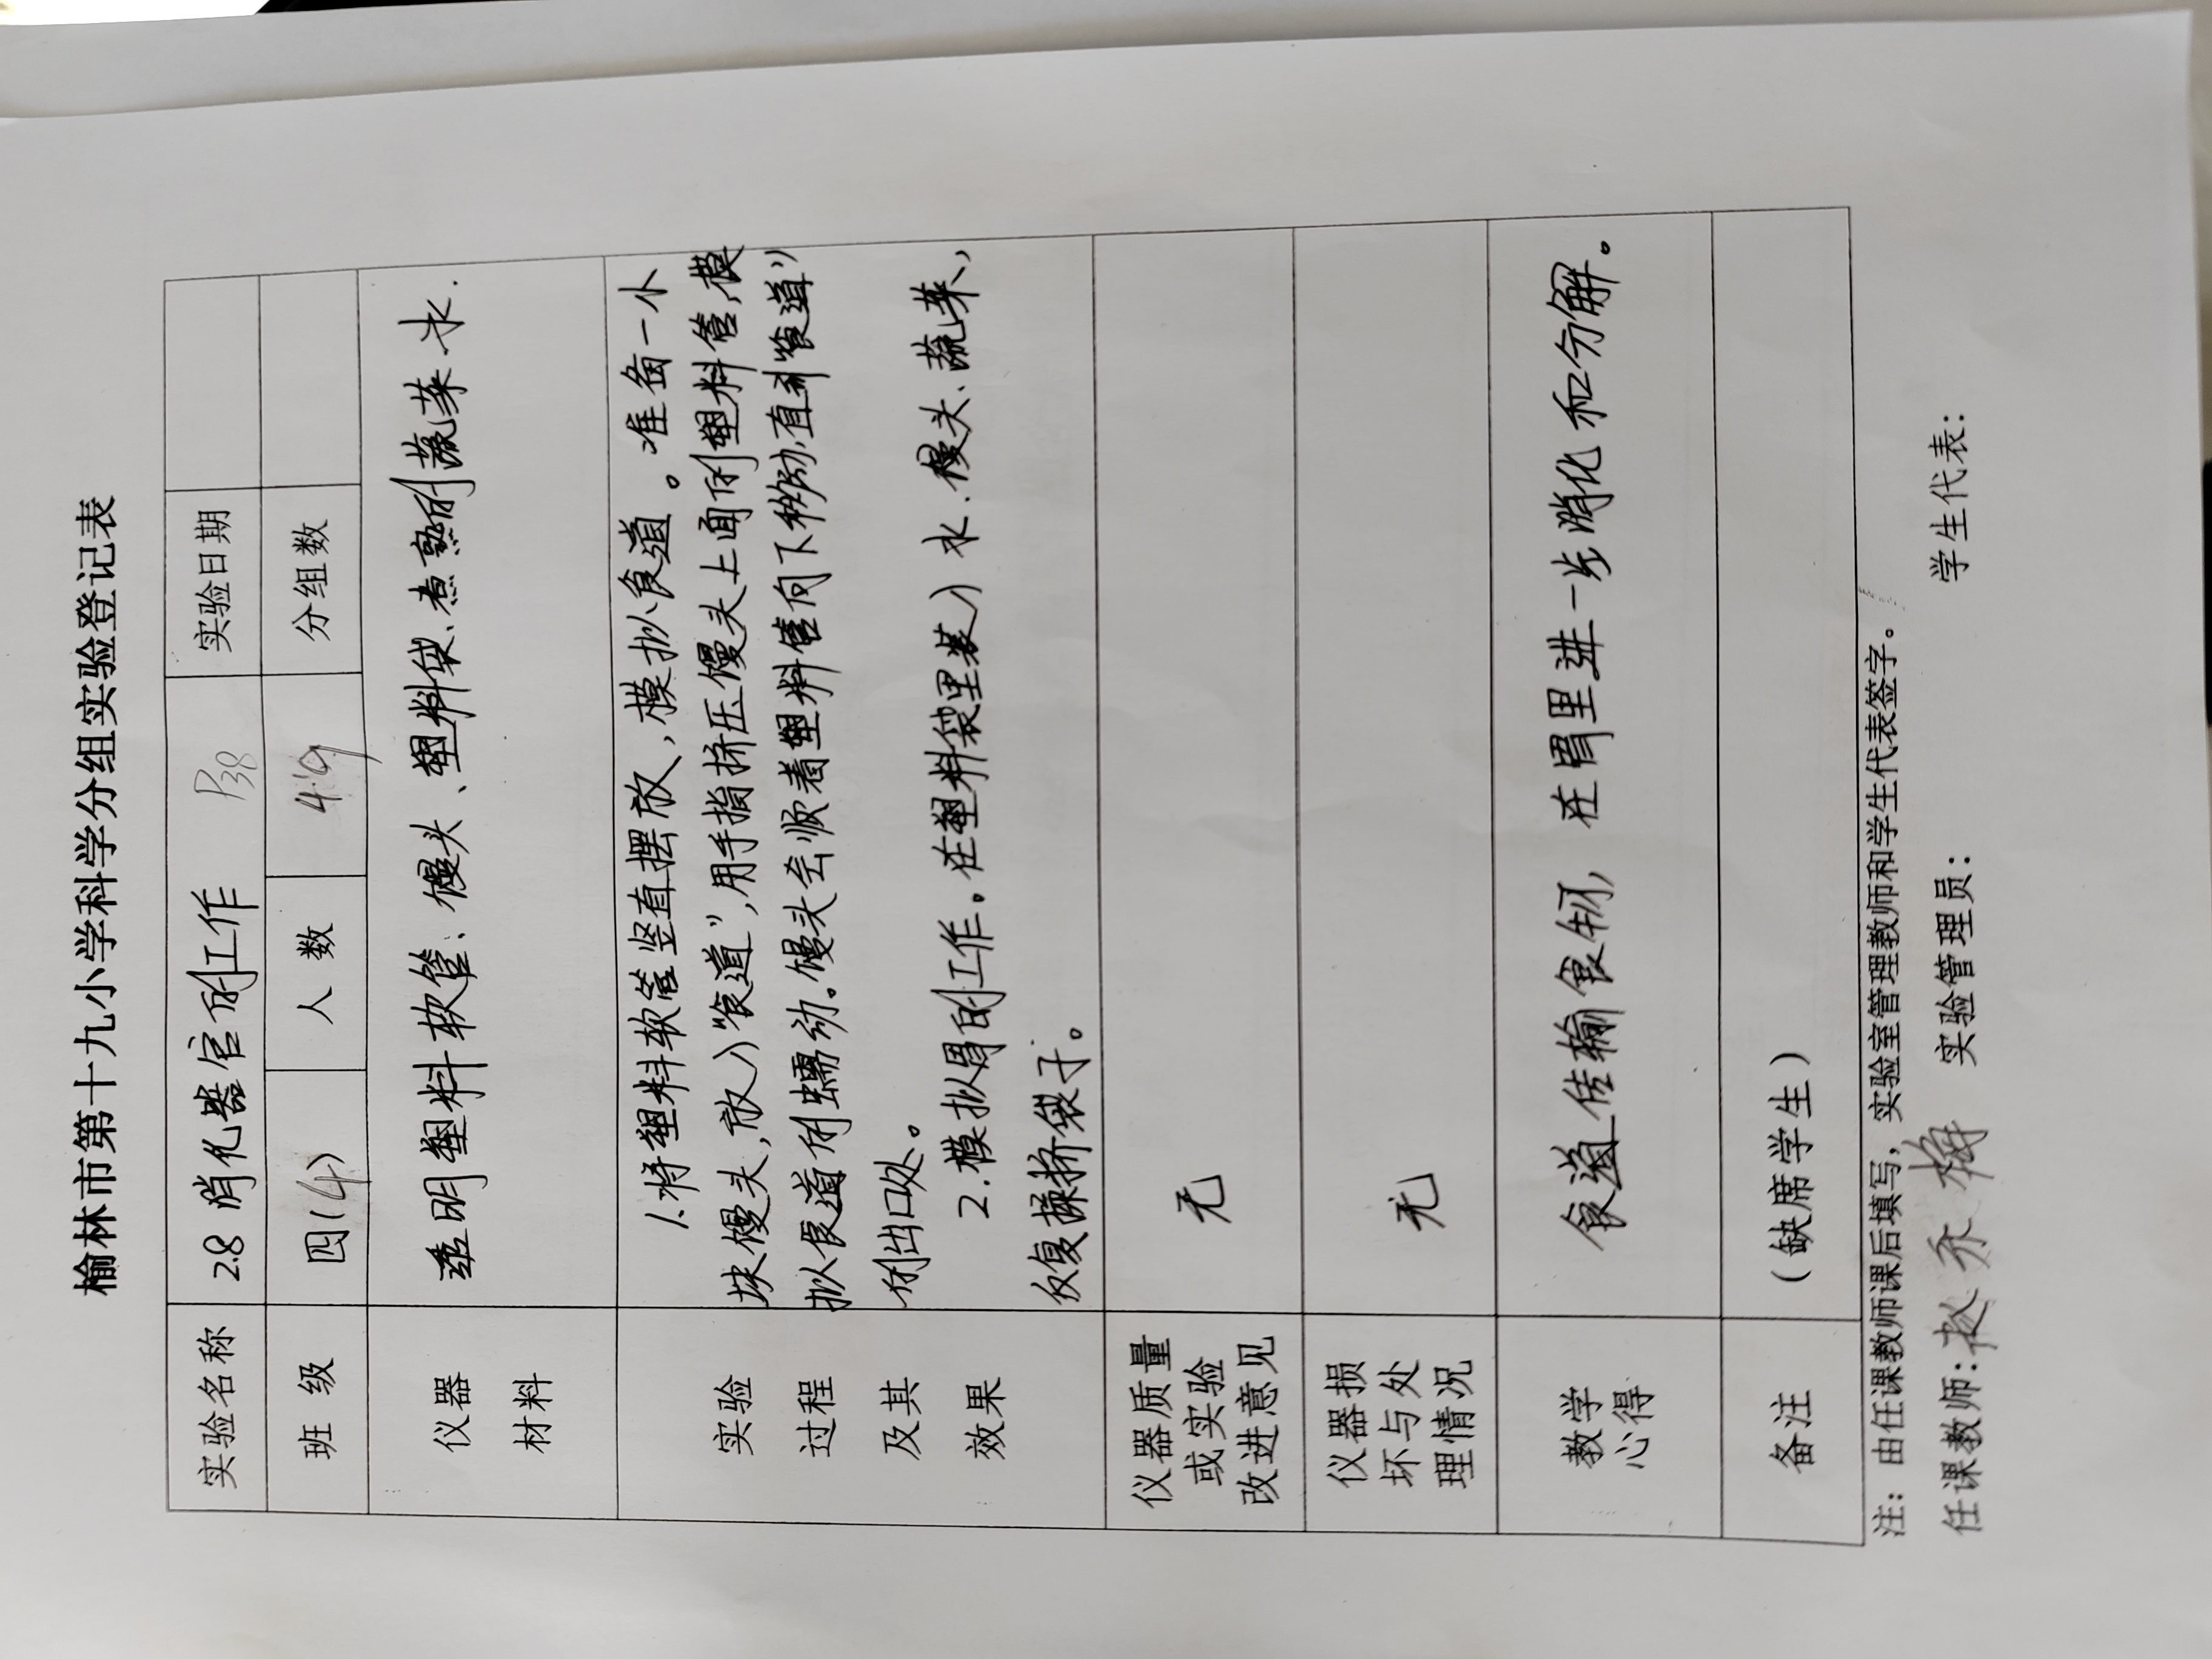 榆林市第十九小学科学分组实验登记表
实验名称 2.8 消化器官的工作 P38 实验日期
班 级 四(4) 人 数 49 分组数
仪器
材料
透明塑料软管、馒头、塑料袋、煮熟的蔬菜、水.
实验
过程
及其
效果
1.将塑料软管竖直摆放,模拟食道。准备一小
块馒头,放入“食道”,用手指挤压馒头上面的塑料管,模
拟食道的蠕动。馒头会顺着塑料管向下移动,直到“食道”
的出口处。
2.模拟胃的工作。在塑料袋里装入水、馒头、蔬菜,
反复揉挤袋子。
仪器质量
或实验
改进意见
无
仪器损
坏与处
理情况
无
教学
心得
食道传输食物,在胃里进一步消化和分解。
备注 (缺席学生)
注:由任课教师课后填写,实验室管理教师和学生代表签字。
任课教师: 实验管理员: 学生代表: